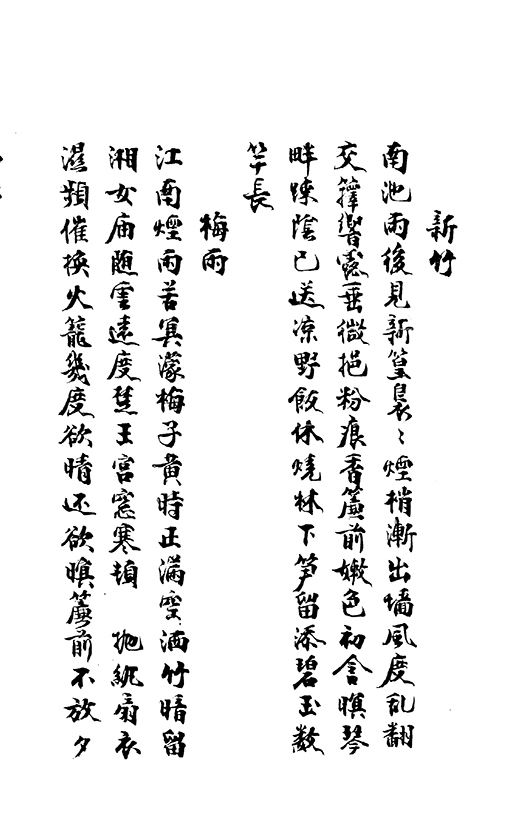 新竹
南池雨後見新篁裊〻煙梢漸出墻風度乱翻
交籜響露垂微挹粉痕香簾前嫩色初含暝琴
畔踈陰已送凉野飯休燒林下笋留添碧玉数
竿長
梅雨
江南煙雨苦冥濛梅子黄時正滿空洒竹暗留
湘女庙随雲遠度楚王宫窓寒頓抛紈扇衣
濕頻催換火籠幾度欲晴还欲暝簾前不放夕